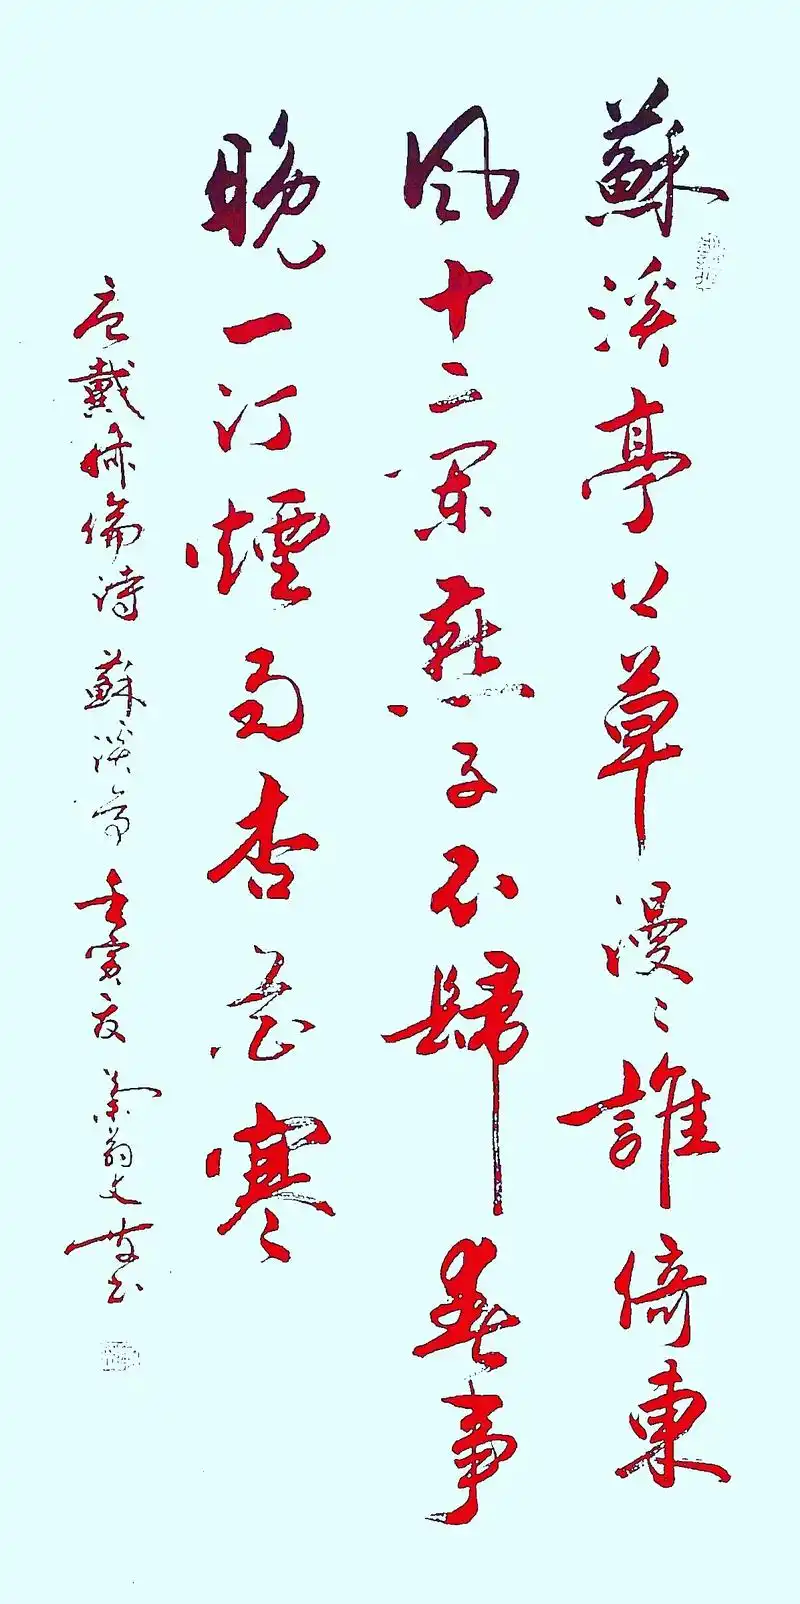 蘇溪亭上草漫〻誰倚東
風十二闌燕子不歸春事
晚一汀煙雨杏花寒
唐戴叔倫詩 蘇溪亭 壬寅夏 翁文書